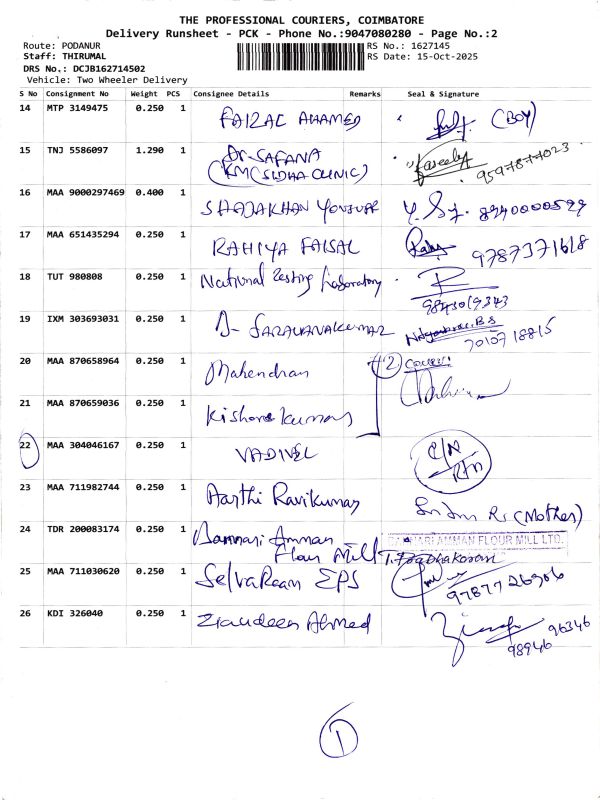 THE PROFESSIONAL COURIERS, COIMBATORE
Delivery Runsheet - PCK - Phone No.:9047080280 - Page No.:2
Route: PODANUR RS No.: 1627145
Staff: THIRUMAL RS Date: 15-Oct-2025
DRS No.: DCJB162714502
Vehicle: Two Wheeler Delivery
S No Consignment No Weight PCS Consignee Details Remarks Seal & Signature
14 MTP 3149475 0.250 1 FAIZAL AHAMED (BOY)
15 TNJ 5586097 1.290 1 Dr. SAFANA
(KMC SIDHA CLINIC) 9597877023
16 MAA 9000297469 0.400 1 SHAJAKHAN 8940000599
17 MAA 651435294 0.250 1 RAHIYA FAISAL 9787371618
18 TUT 980808 0.250 1 National Testing Laboratory
9843019343
19 IXM 303693031 0.250 1 D- SARAVANAKUMAR
7010718815
20 MAA 870658964 0.250 1 Mahendran (2)
21 MAA 870659036 0.250 1 Kishore kumar
22 MAA 304046167 0.250 1 VADIVEL C/N
Rtn
23 MAA 711982744 0.250 1 Aarthi Ravikumar (Mother)
24 TDR 200083174 0.250 1 Bannari Amman
Flour Mill BANNARI AMMAN FLOUR MILL LTD.
T. Prabhakaran
25 MAA 711030620 0.250 1 Selvaraam EPS
9787726906
26 KDI 326040 0.250 1 Ziaudeen Ahmed 96346
98946
1